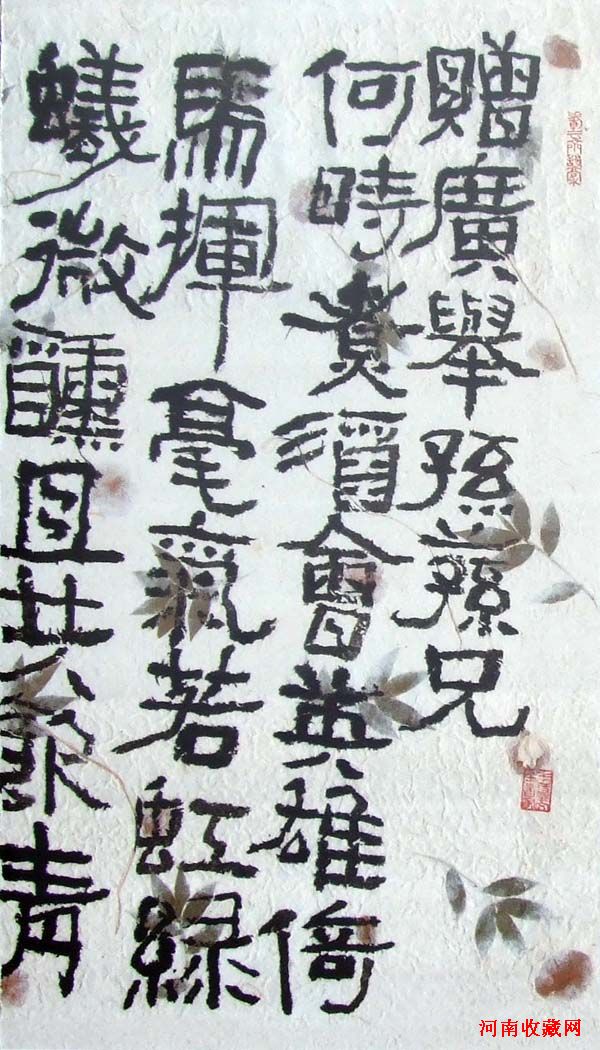 贈廣舉孫兄
何時煮酒會英雄倚
馬揮毫氣若虹綠
蟻微醺且共青
河南收藏网